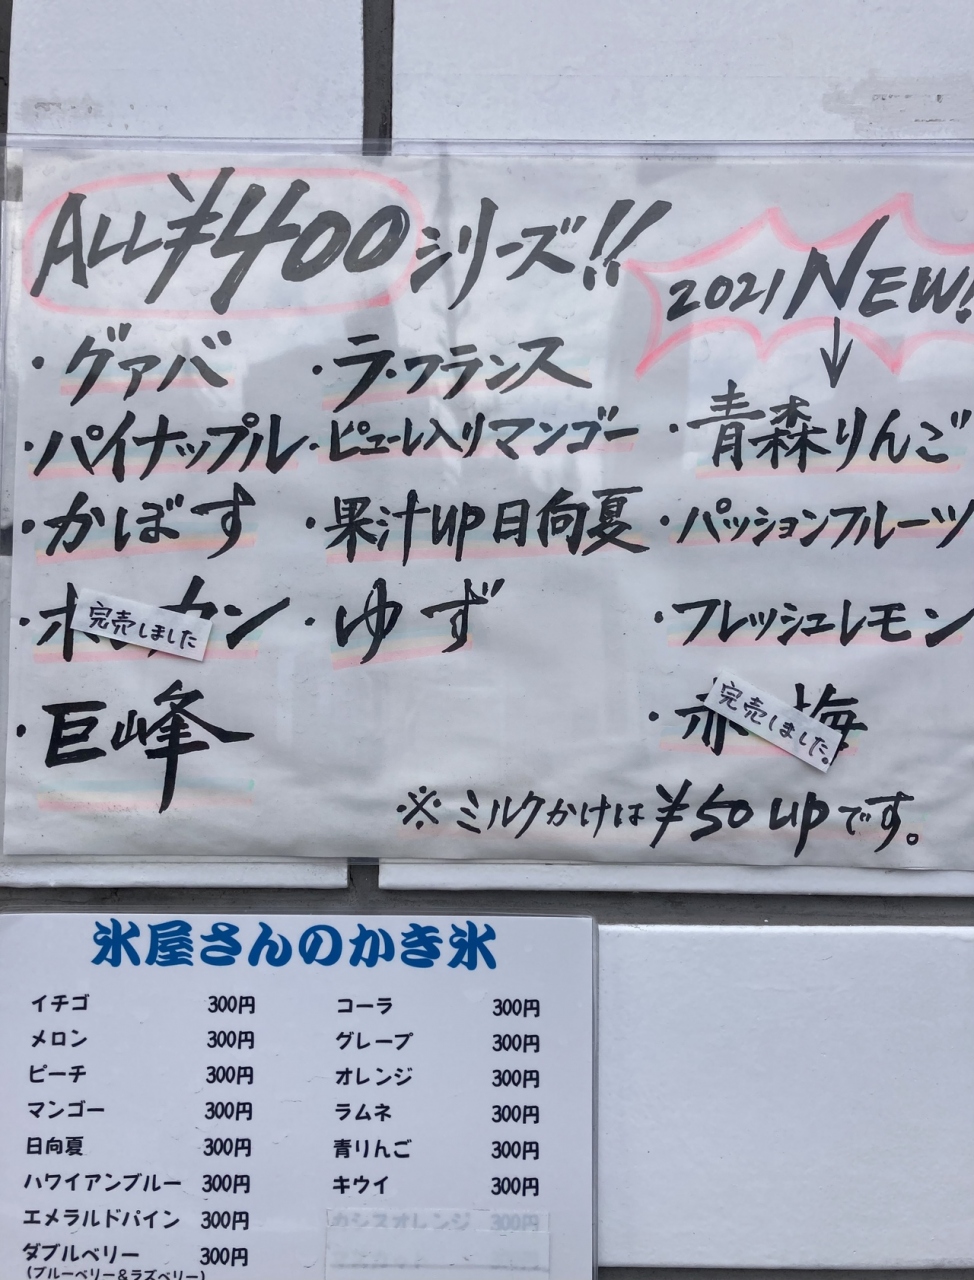 ALL¥400シリーズ!!
2021 NEW!
・グァバ
・パイナップル
・かぼす
・ポンカン
完売しました
・巨峰
・ラ・フランス
・ピューレ入りマンゴー
・果汁up日向夏
・ゆず
・青森りんご
・パッションフルーツ
・フレッシュレモン
・赤梅
完売しました。
※ミルクかけは¥50upです。
氷屋さんのかき氷
イチゴ 300円
メロン 300円
ピーチ 300円
マンゴー 300円
日向夏 300円
ハワイアンブルー 300円
エメラルドパイン 300円
ダブルベリー 300円
(ブルーベリー&ラズベリー)
コーラ 300円
グレープ 300円
オレンジ 300円
ラムネ 300円
青りんご 300円
キウイ 300円
カシスオレンジ 300円